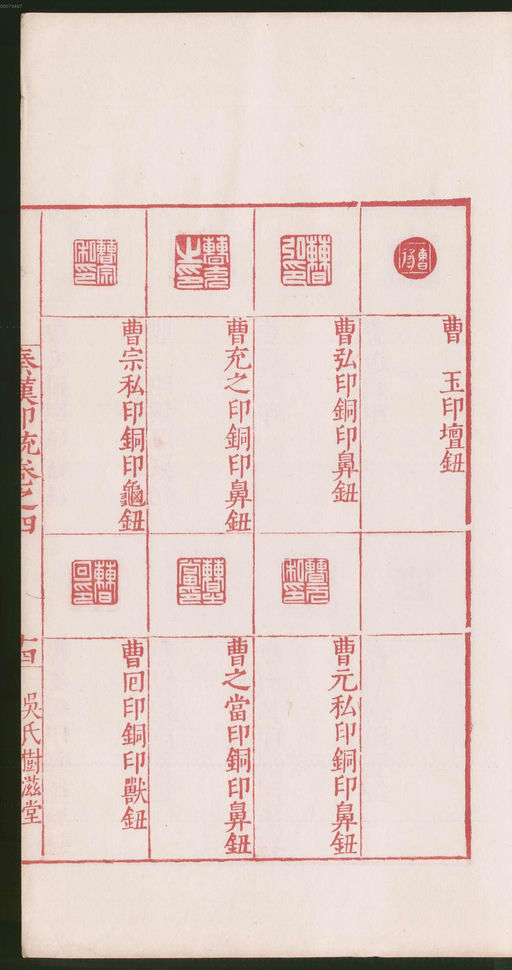 00073487
曹　玉印壇鈕
曹弘印銅印鼻鈕
曹充之印銅印鼻鈕
曹宗私印銅印龜鈕
曹元私印銅印鼻鈕
曹之當印銅印鼻鈕
曹囘印銅印獸鈕
秦漢印統卷之四
十四
吳氏樹滋堂